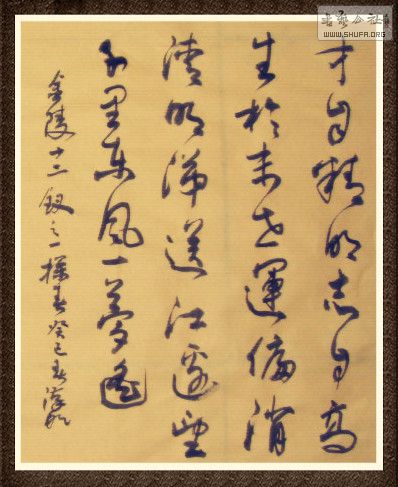 才自精明志自高
生於末世運偏消
清明涕送江邊望
千里東風一夢遙
金陵十二釵之一探春癸巳春
書藝公社
WWW.SHUFA.ORG